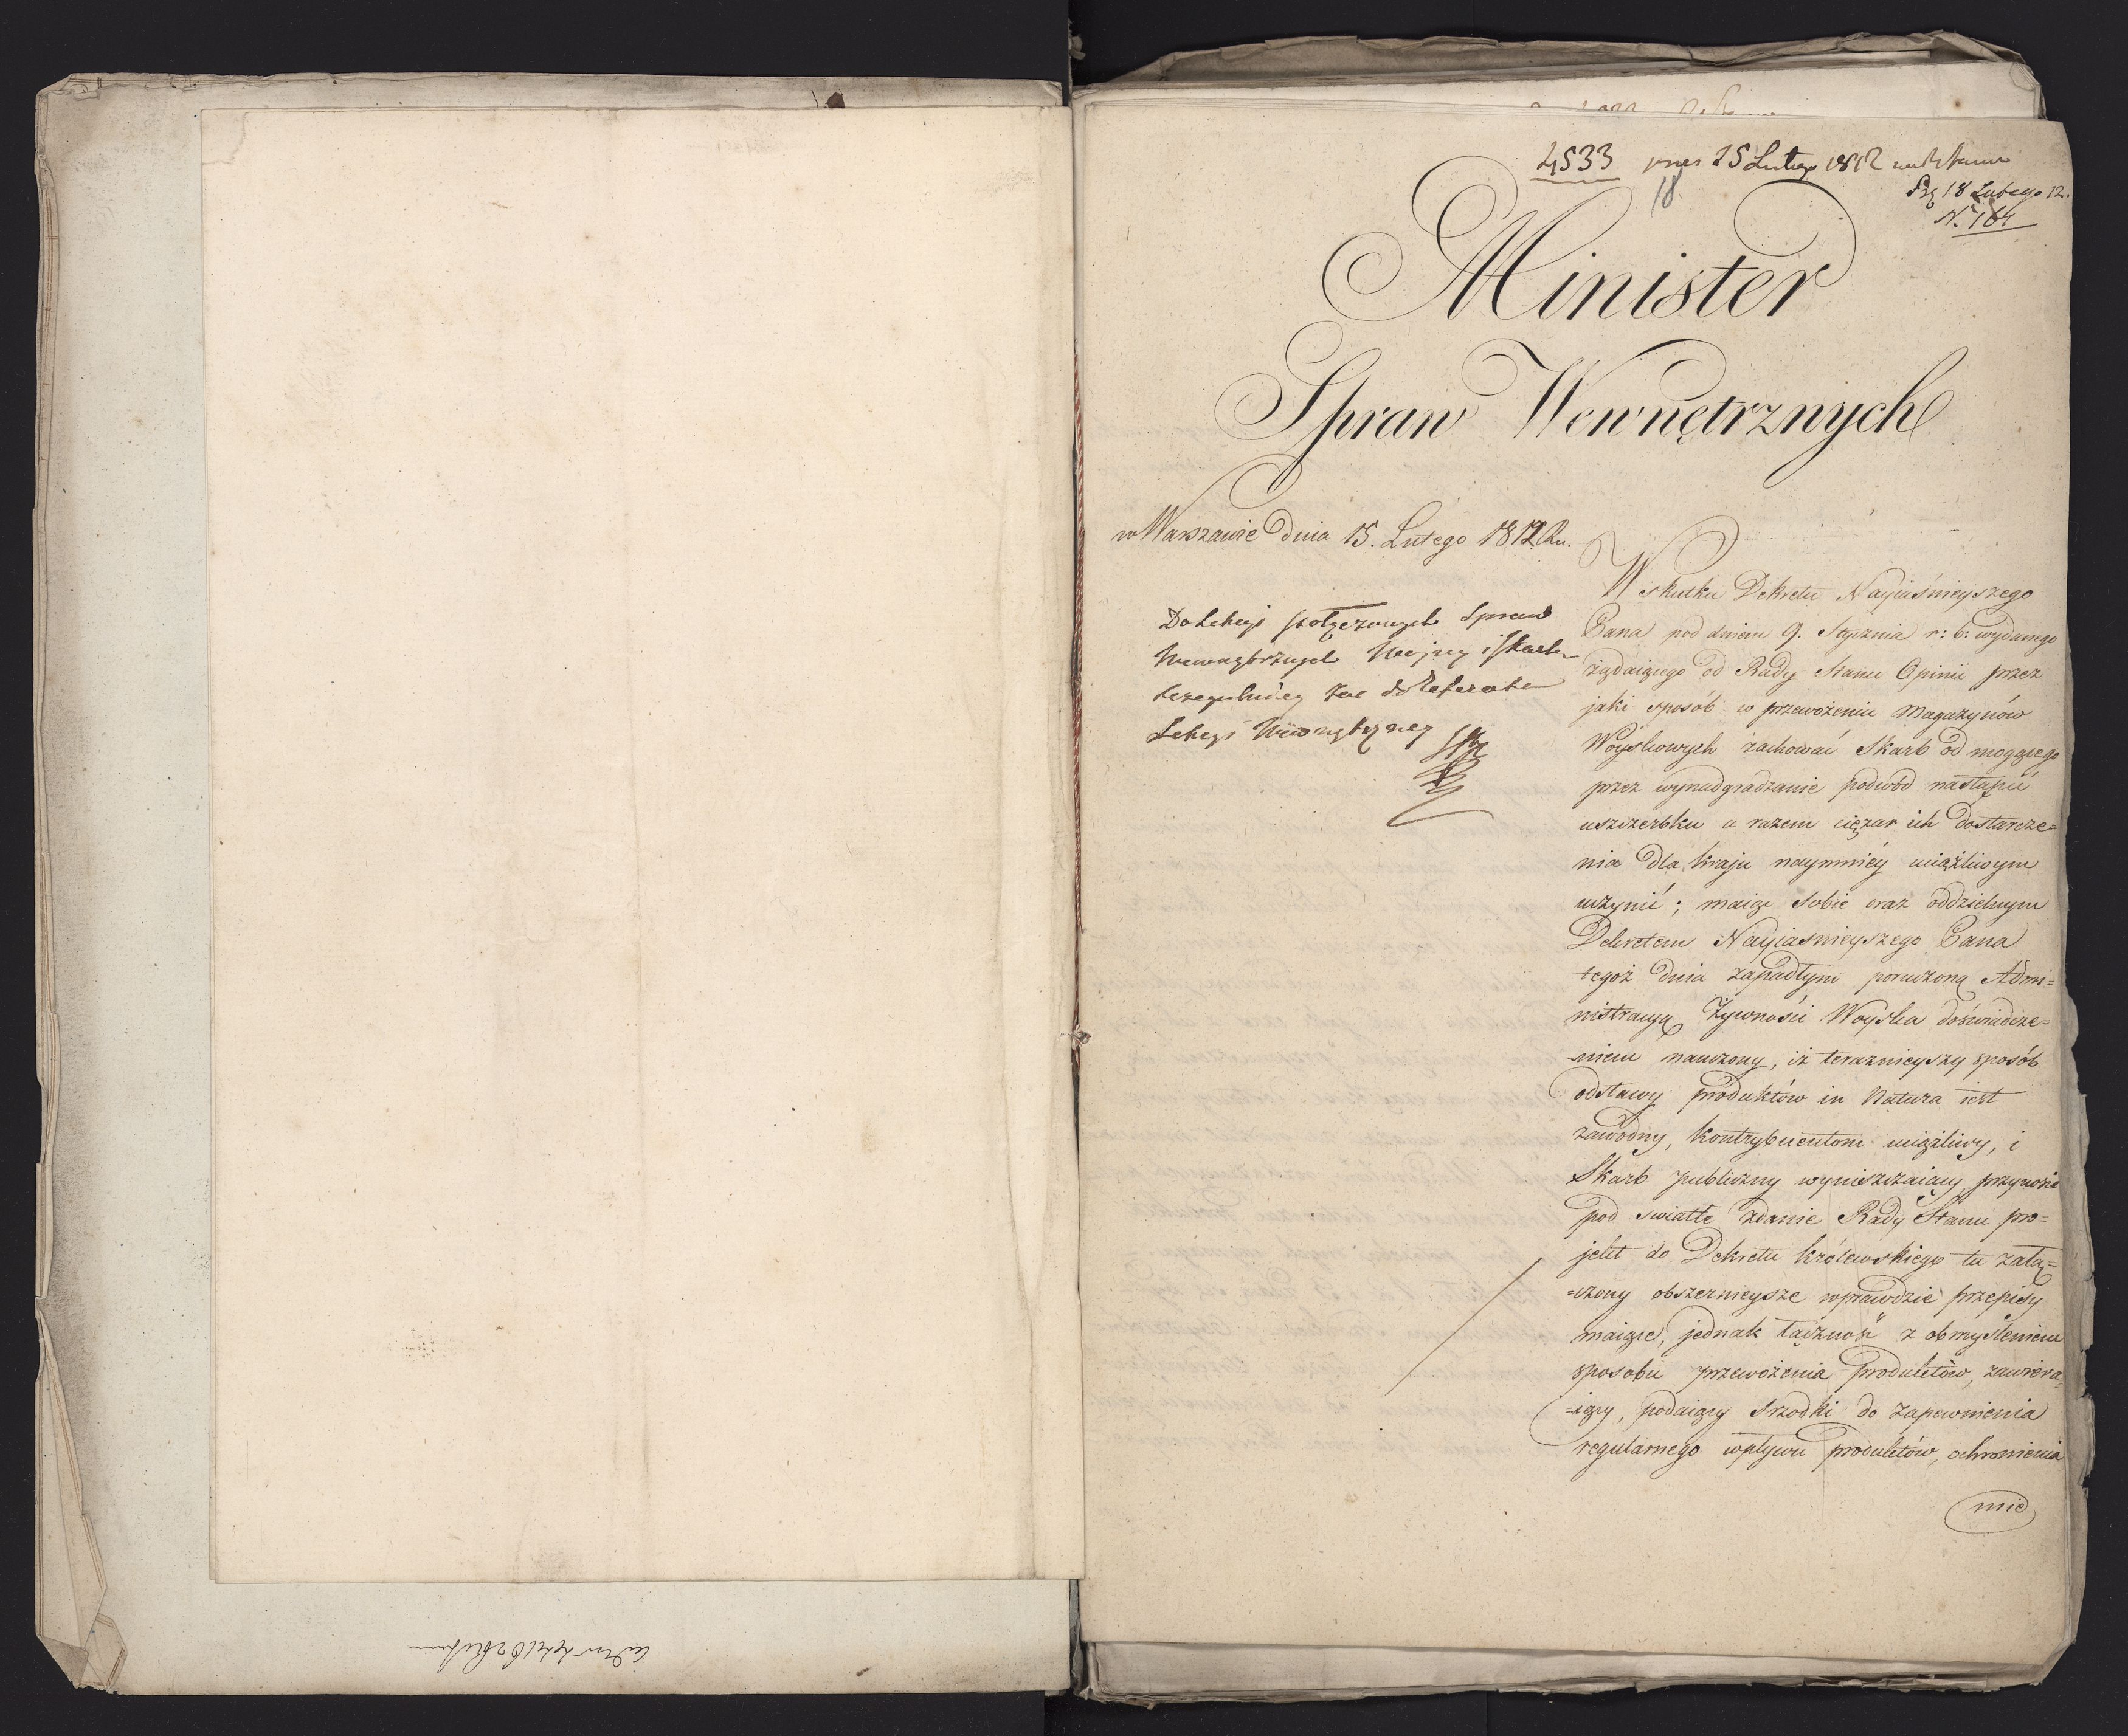 4533 18 15 Lutego 1812
18 Lutego 12.
N. 164
Minister
Spraw Wewnętrznych
w Warszawie dnia 15. Lutego 1812 Ru.
Do Sekcyi połączonych Spraw
Wewnętrznych Woyny i Skarbu
do Referatu
Sekcyi Wewnętrzney
W skutku Dekretu Nayiaśnieyszego
Pana pod dniem 9. Stycznia r: b: wydanego
żądaiącego od Rady Stanu Opinii przez
jaki sposób w przewożeniu Magazynów
Woyskowych zachować Skarb od mogącego
przez wynadgradzanie podwód nastąpić
uszczerbku a razem ciężar ich dostarcze=
nia dla kraju naymniéy uciążliwym
uczynić; maiąc sobie oraz oddzielnym
Dekretem Nayiasnieyszego Pana
tegoż dnia zapadłym poruczoną Admi=
nistracyą Żywności Woyska doświadcze=
niem nauczony, iż teraznieyszy sposób
odstawy produktów in Natura iest
zawodny, kontrybuentom uciążliwy, i
Skarb publiczny wyniszczaiący, przynosi
pod swiatłe zdanie Rady Stanu pro=
jekt do Dekretu królewskiego tu załą=
=czony obszernieysze wprawdzie przepisy
maiące, jednak łączność z obmysleniem
sposobu przewożenia produktów, zawiera
=iący, podaiący srzodki do zapewnienia
regularnego wpływu produktów, ochronienia
mie